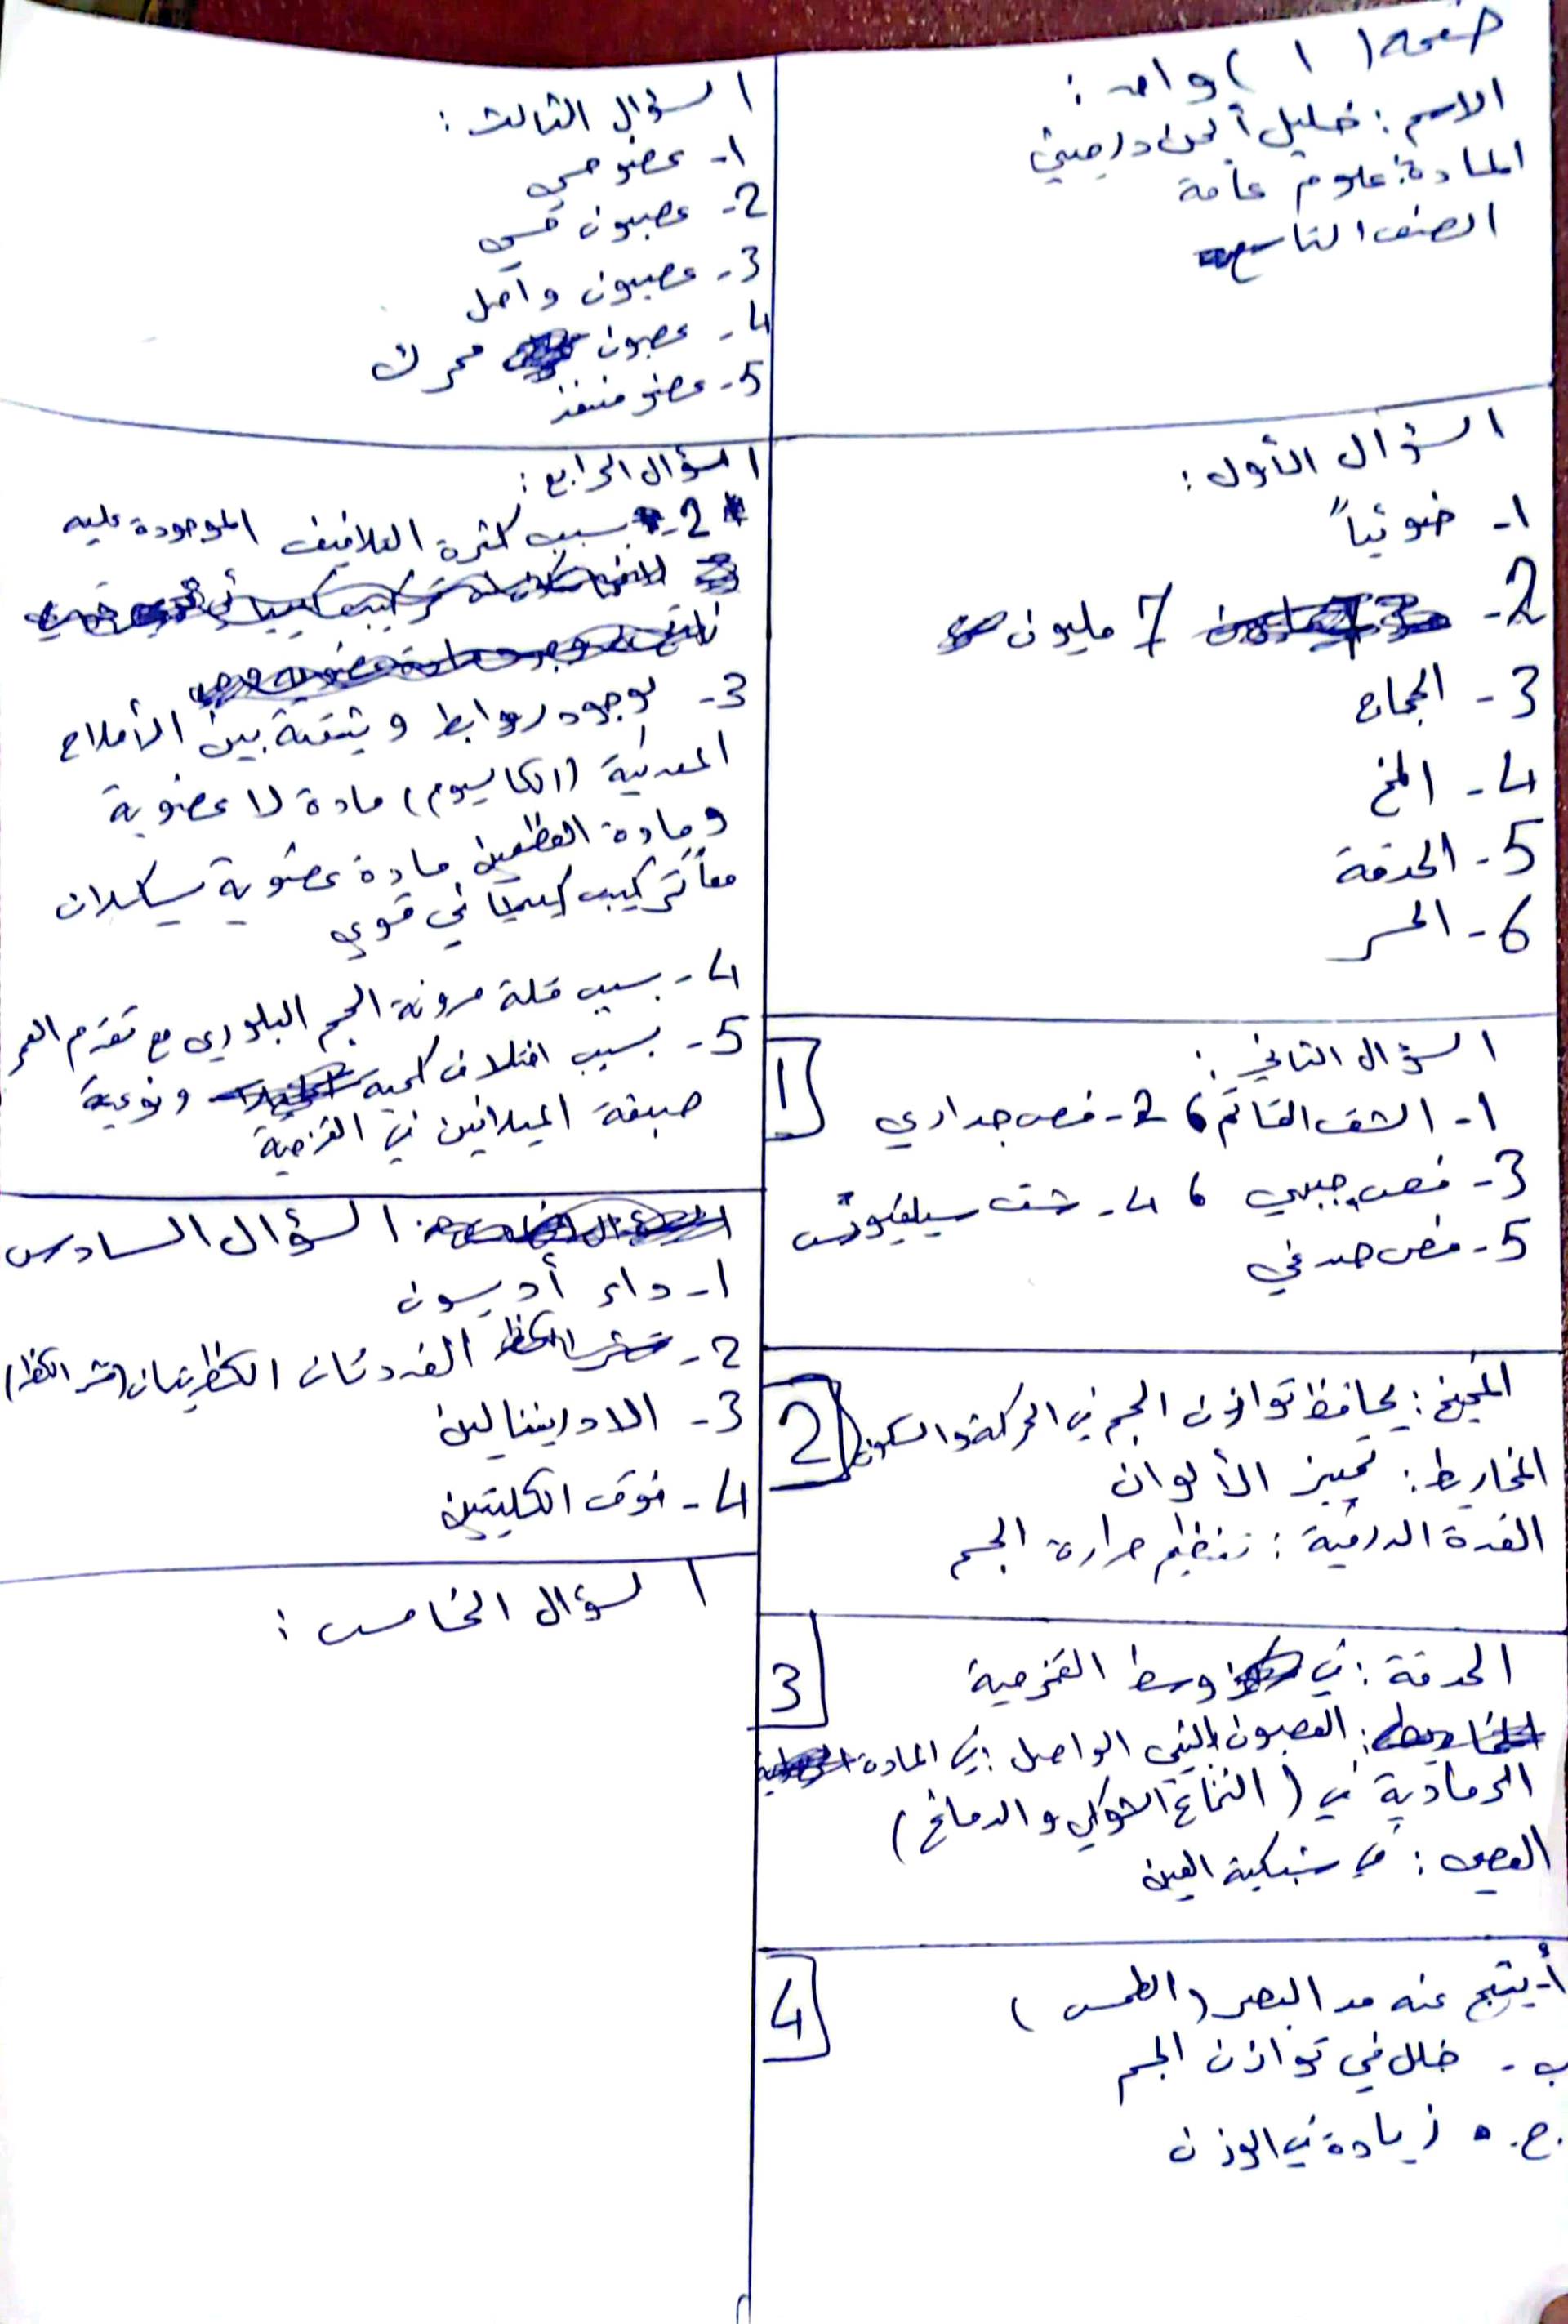 صفحة ( ١ ) واحد :
الاسم : خليل أيمن درميني
المادة : علوم عامة
الصف التاسع
السؤال الأول :
١- ضوئياً
2- 7 مليون
3- الحجاج
4- المخ
5- الحدقة
6- الحسر
السؤال الثاني :
1
١- الشق القائم ، 2- فص جداري
3- فص جبهي ، 4- شق سيلفيوس
5- فص صدغي
2
المخيخ : يحافظ توازن الجسم في الحركة والسكون
المخاريط : تمييز الألوان
الغدة الدرقية : تنظيم حرارة الجسم
3
الحدقة : في وسط القزحية
العصبون البيني الواصل : في المادة
الرمادية في (النخاع الشوكي والدماغ)
العصي : في شبكية العين
4
أ- ينتج عنه مد البصر (الطمس)
ب - خلل في توازن الجسم
ج. زيادة في الوزن
السؤال الثالث :
١- عضو حسي
2- عصبون حسي
3- عصبون واصل
4- عصبون محرك
5- عضو منفذ
السؤال الرابع :
2- بسبب كثرة التلافيف الموجودة عليه
3- لوجود روابط وثيقة بين الأملاح
المعدنية (الكالسيوم) مادة لا عضوية
ومادة العظمين مادة عضوية يشكلان
معاً تركيب كيميائي قوي
4- بسبب قلة مرونة الجسم البلوري مع تقدم العمر
5- بسبب اختلاف كمية ونوعية
صبغة الميلانين في القزحية
السؤال السادس
١- داء أديسون
2- الغدتان الكظريتان (قشر الكظر)
3- الادرينالين
4- فوق الكليتين
السؤال الخامس :